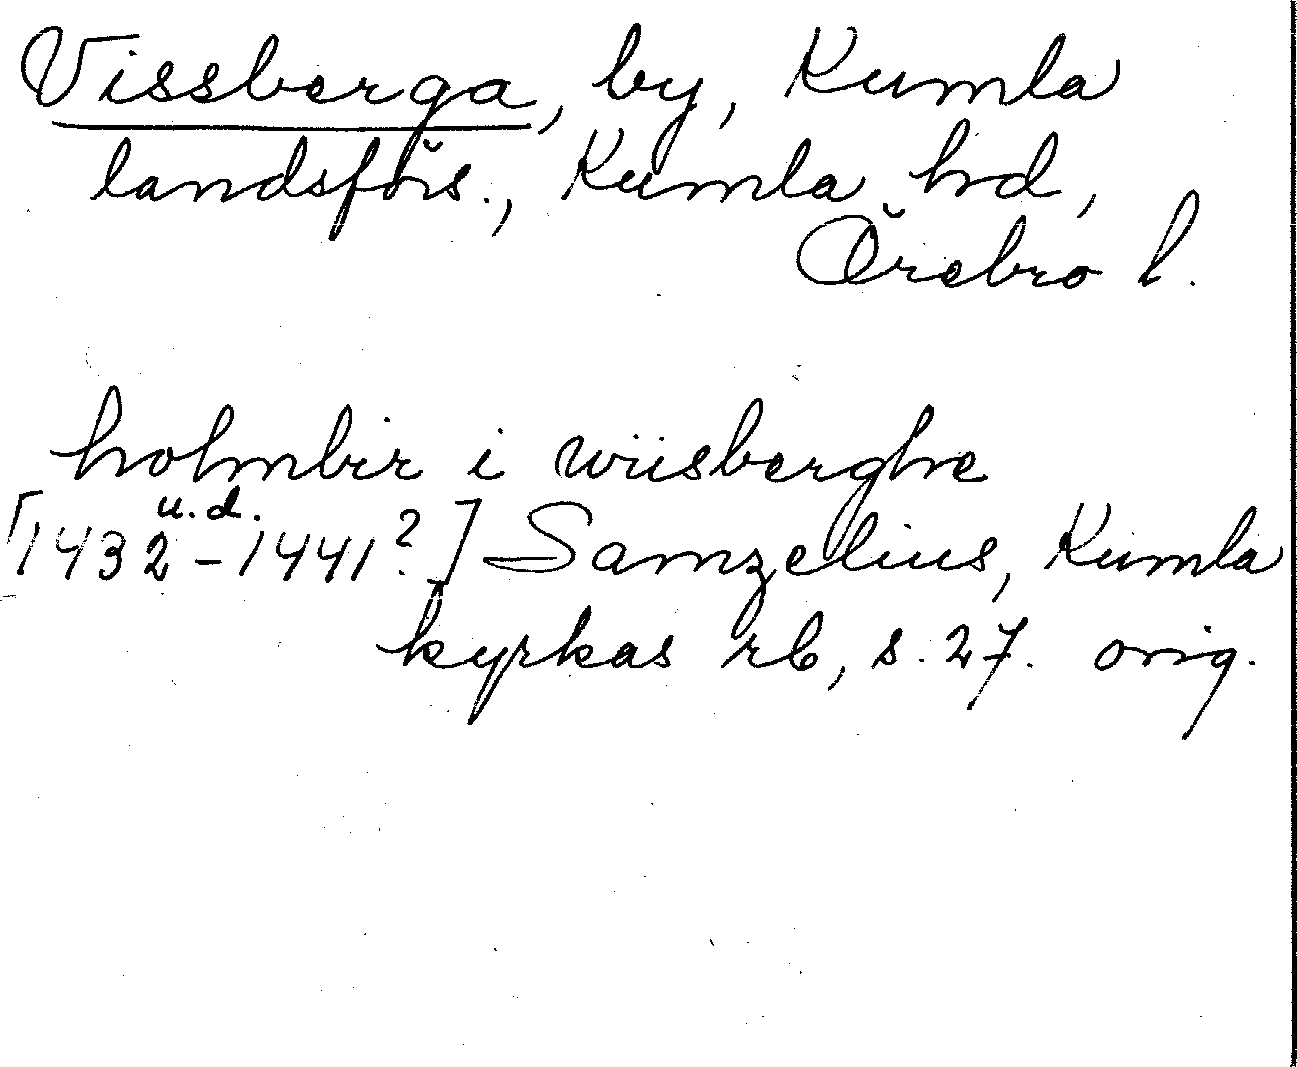 Vissberga, by, Kumla
landsförs., Kumla hd,
Örebro l.
holmbir i wiisberghe
u.d.
[1432-1441?] Samzelius, Kumla
kyrkas rb, s. 27. orig.